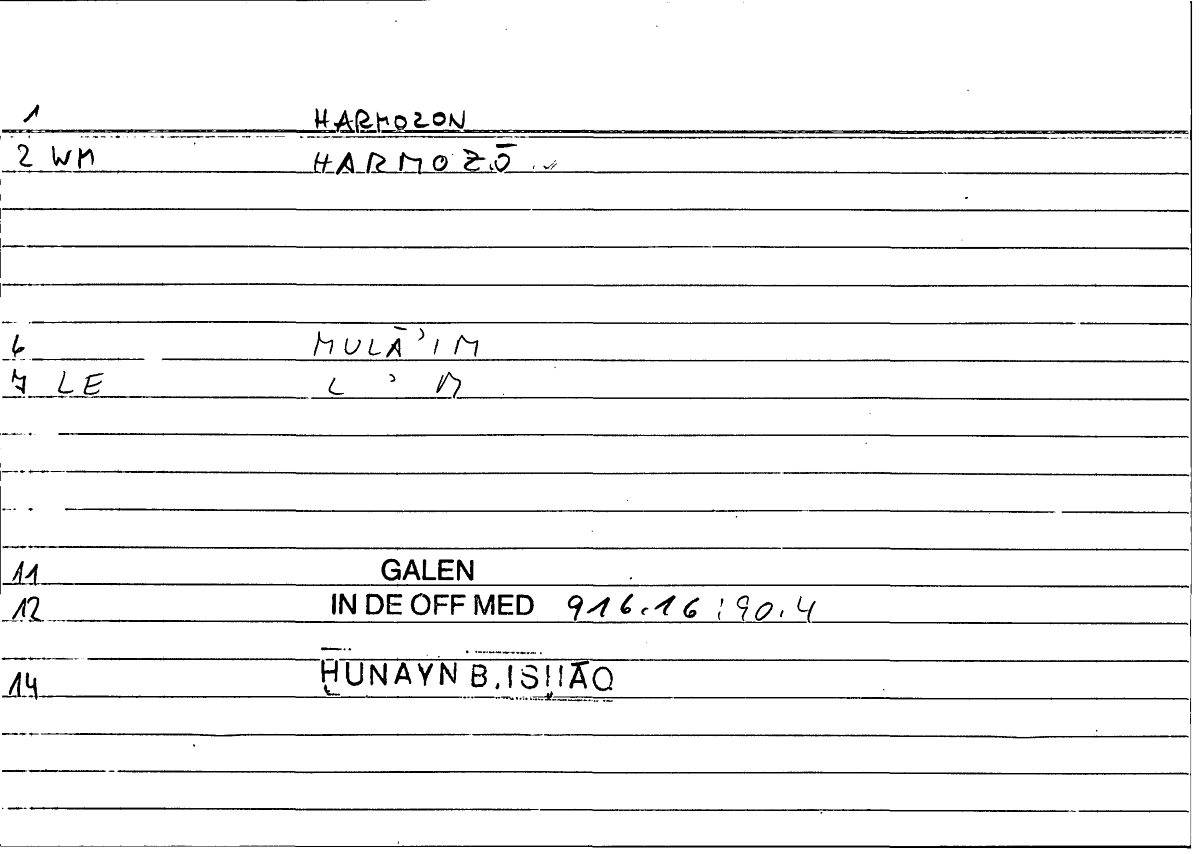 1 HARMOZON
2 WM HARMOZŌ
6 MULĀʾIM
7 LE L ʾ M
11 GALEN
12 IN DE OFF MED 916.16 : 90.4
14 ḤUNAYN B. ISḤĀQ